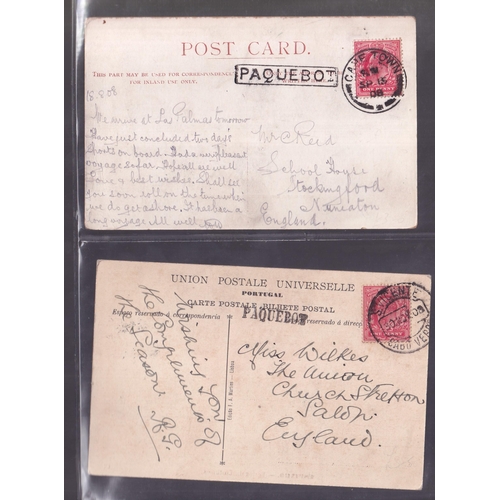 POST CARD.
THIS PART MAY BE USED FOR CORRESPONDENCE
FOR INLAND USE ONLY.
PAQUEBOT
CAPE TOWN
18.8.08
We arrive at Las Palmas tomorrow
Have just concluded two days
Sports on board. Had a
voyage so far. Hope all are well
Love & best wishes. Shall see
you soon
we do get ashore.
long voyage. All well
Mr C Reid
School House
Stockingford
Nuneaton
England.
UNION POSTALE UNIVERSELLE
PORTUGAL
CARTE POSTALE BILHETE POSTAL
Espaço reservado á correspondencia
reservado á direcç
PAQUEBOT
S. VICENTE
CABO VERDE
Wishing you
the Compliments of
the Season
Miss Wilkes
The Union
Church Stretton
Salop
England.